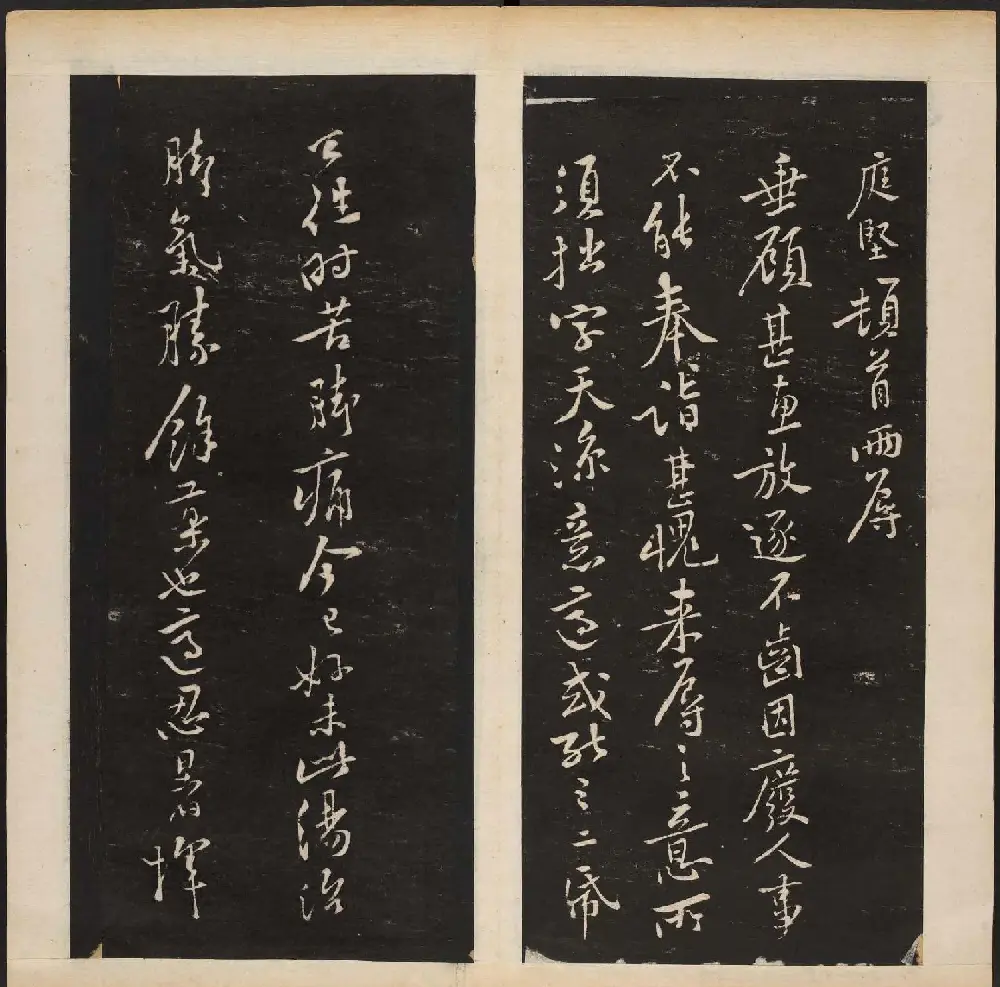 庭堅頓首兩辱
垂顧甚惠放逐不齒因廢人事
不能奉詣甚愧來辱之意所
須拙字天涼意適或能三二紙
公往時苦脚痛今已好未此湯治
脚氣勝餘藥也適忍暑揮